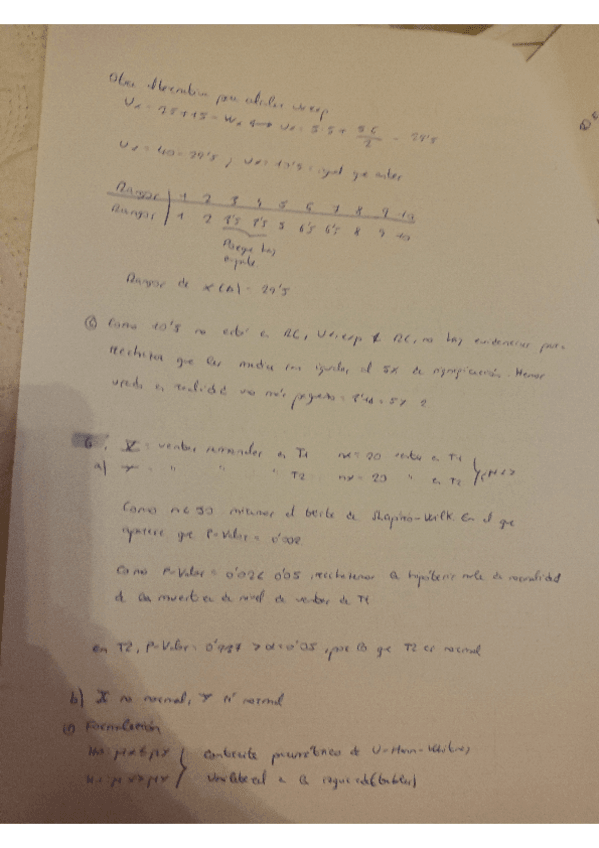 Otra Alternativa para calcular Uexp
Ux = 25+15 - Wx → Ux = 5·5 + 5·6/2 - 29'5
Ux = 40 - 29'5 ; Ux = 10'5 igual que antes
Rangos | 1 2 3 4 5 6 7 8 9 10
Rangos | 1 2 3'5 3'5 5 6'5 6'5 8 9 10
Porque hay
empate
Rangos de X (A) = 29'5
Como 10'5 no está en RC, Uexp ∉ RC, no hay evidencias para
rechazar que las medias son iguales al 5% de significación. Hemos
usado en realidad uno más pequeño
6. X = ventas mensuales en T1 nx = 20 ventas en T1
a) Y = " " " T2 " en T2
Como n < 30 miramos el test de Shapiro-Wilk. En el que
aparece que P-Valor =
Como P-Valor = 0'05, rechazamos la hipótesis nula de normalidad
de la muestra de nivel de ventas de T1
en T2, P-Valor = > α = 0'05, por lo que T2 es normal
b) X no normal, Y sí normal
Formulación
H0: μx ≤ μy } contraste de U-Mann-Whitney
H1: μx > μy } Unilateral a la izquierda (tablas)